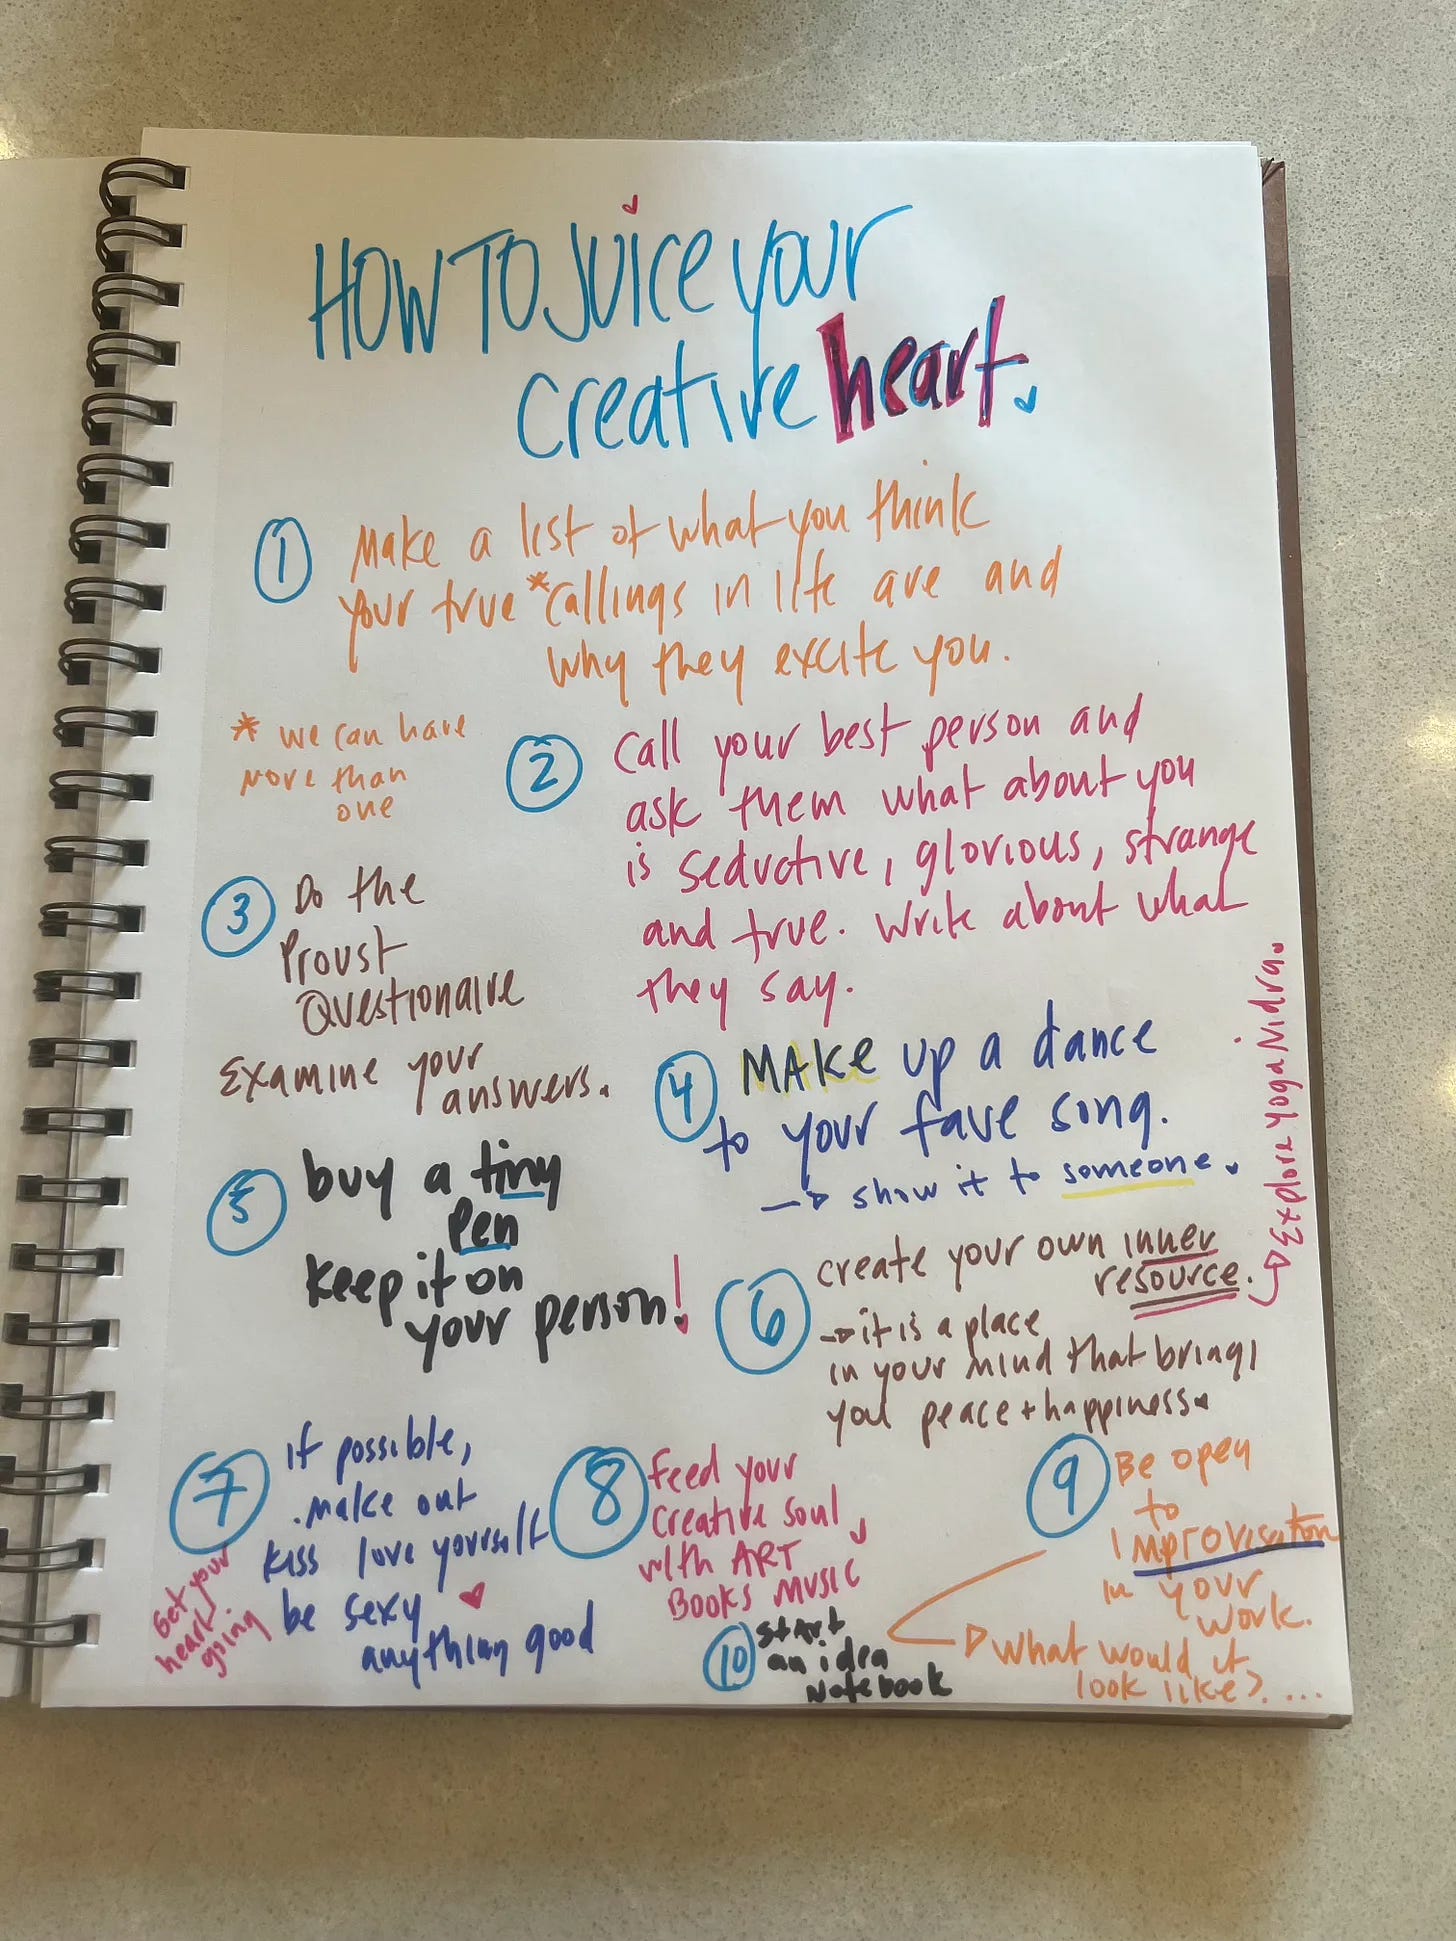 HOW TO JUICE your
creative heart.
1 Make a list of what you think
your true *callings in life are and
why they excite you.
* we can have
more than
one
2 Call your best person and
ask them what about you
is seductive, glorious, strange
and true. Write about what
they say.
3 Do the
Proust
Questionaire
Examine your
answers.
4 MAKE up a dance
to your fave song.
show it to someone.
5 buy a tiny
pen
keep it on
your person!
6 create your own inner
resource.
it is a place
in your mind that brings
you peace + happiness.
Explore Yoga Nidra.
7 if possible,
make out
kiss love yourself
be sexy
anything good
Get your
heart
going
8 Feed your
creative soul
with ART
BOOKS MUSIC
9 Be open
to
Improvisation
in your
work.
What would it
look like? ....
10 start
an idea
Notebook